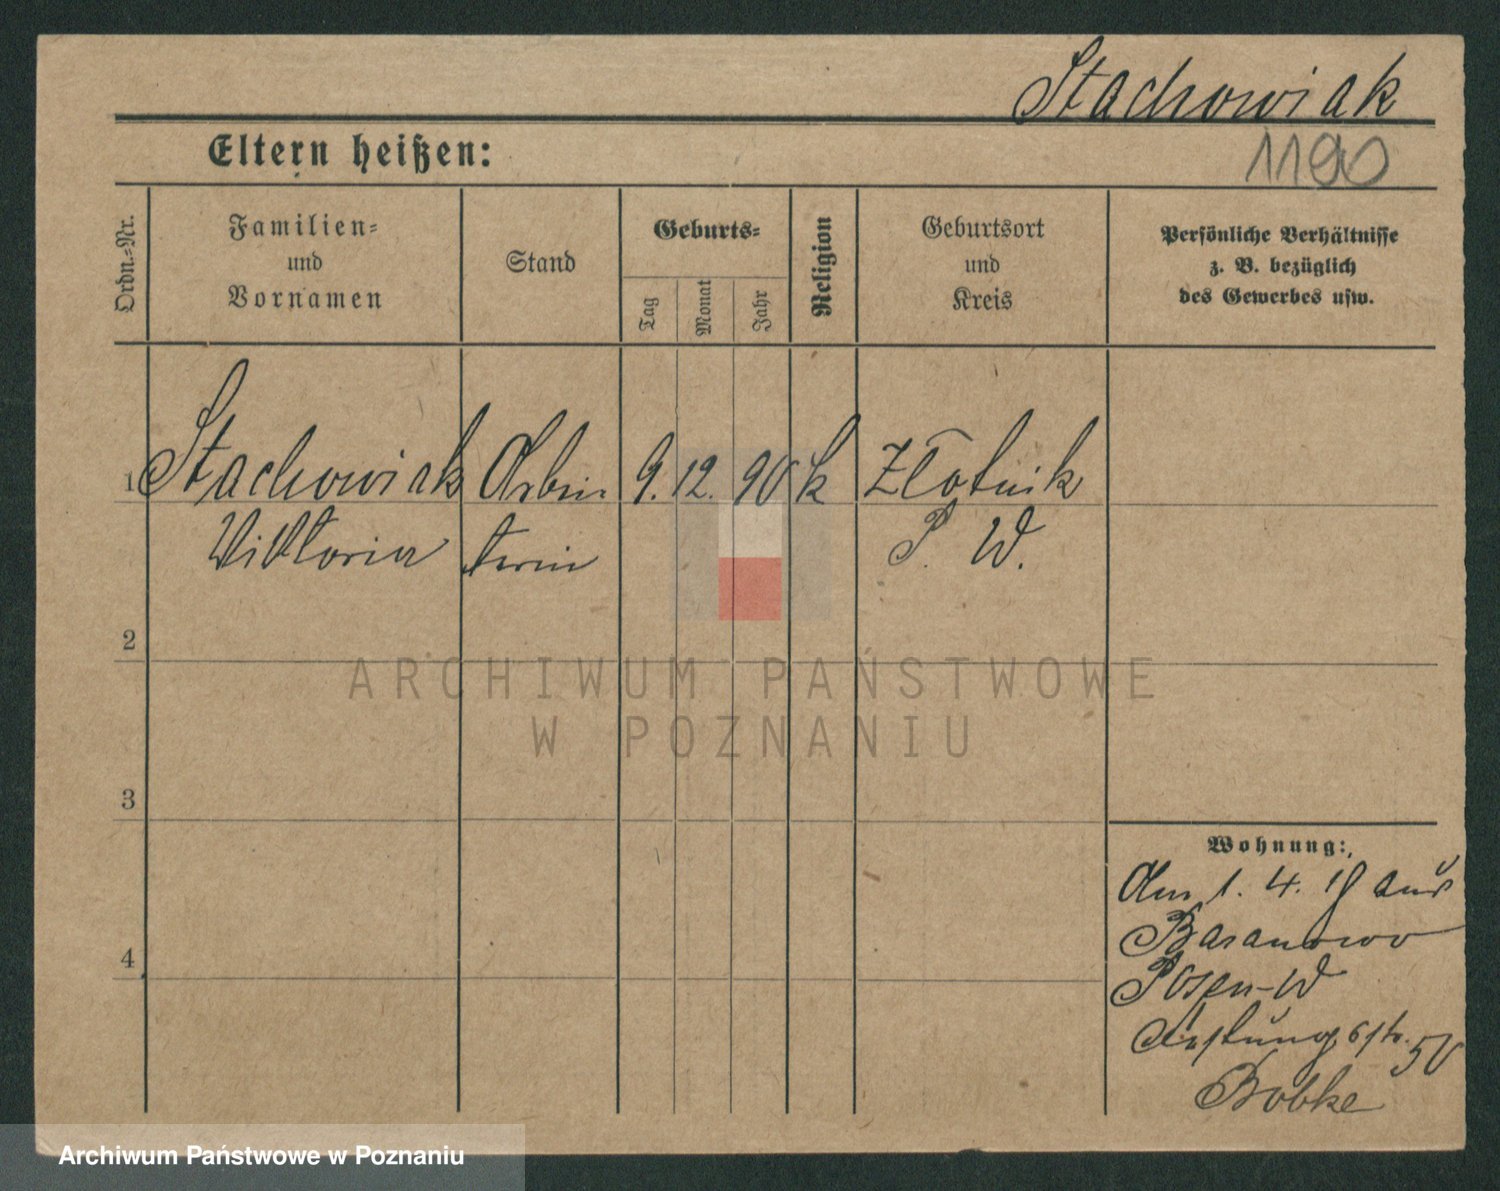 Stachowiak
Eltern heißen:
1190
Ordn.-Nr.
Familien- und Vornamen
Stand
Geburts-
Tag
Monat
Jahr
Religion
Geburtsort und Kreis
Persönliche Verhältnisse
z. B. bezüglich
des Gewerbes usw.
1 Stachowiak Arbei 9. 12. 90 k Złotnik
Viktoria terin P. W.
2
3
4
Wohnung:
Am 1. 4. 18 aus
Baranowo
Posen-W
50
Bobke
ARCHIWUM PAŃSTWOWE
W POZNANIU
Archiwum Państwowe w Poznaniu